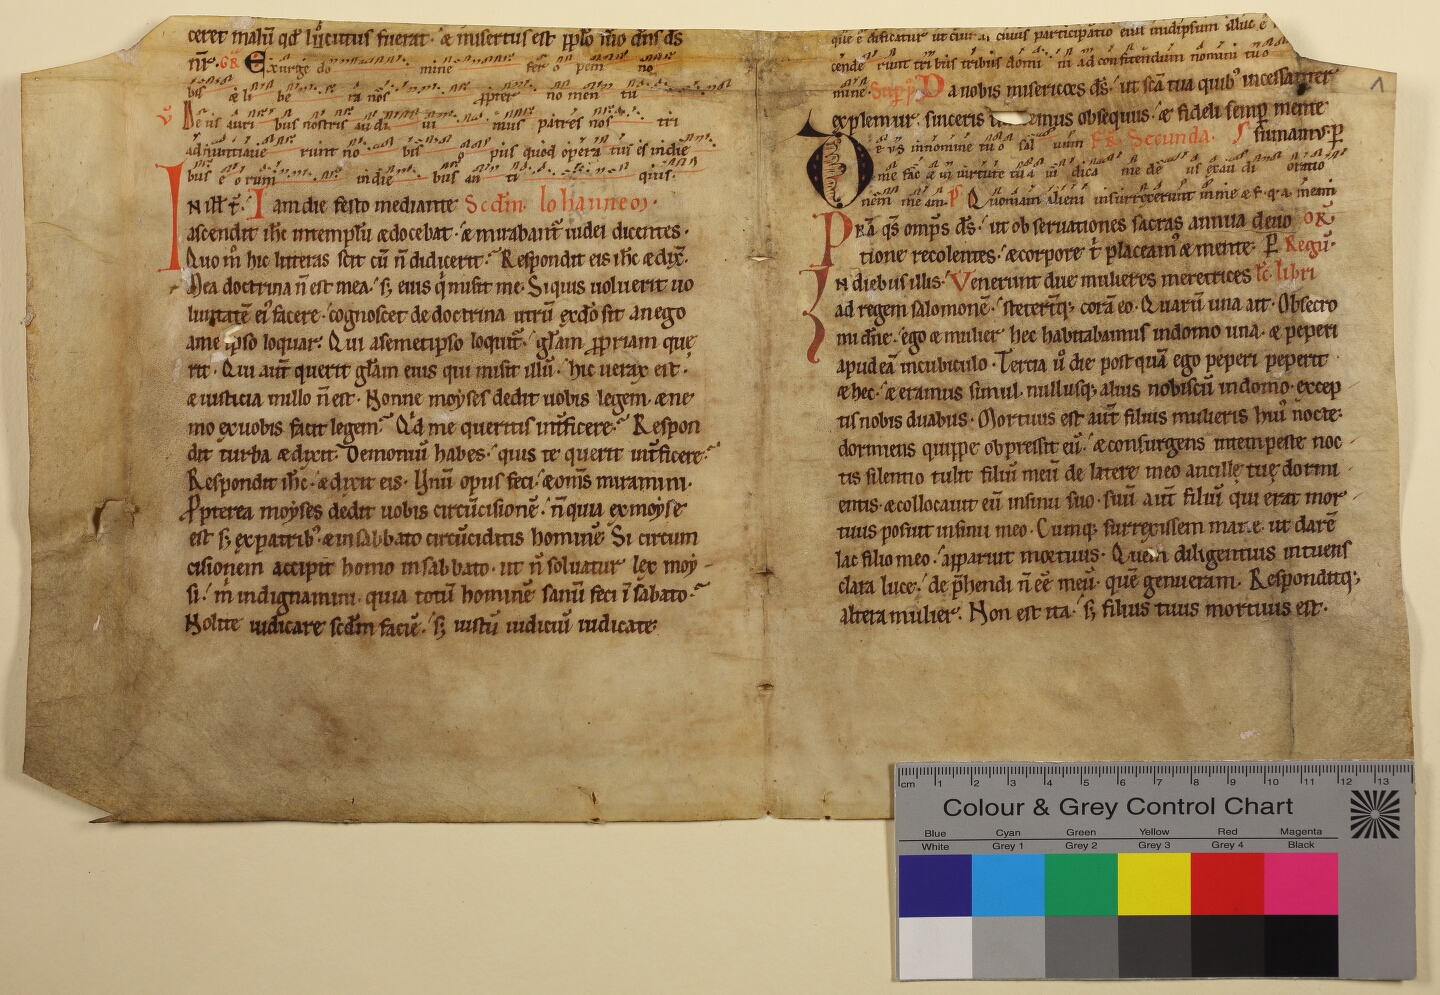 ceret malū qd̄ locutus fuerat · ⁊ misertus est pplo suo dn̄s ds̄
nr̄ · GR Exurge do mine fer o pem no
bis & li be ra nos ꝓpter no men tu
V̄ De us auri bus nostris au di ui mus patres nos tri
adnuntiaue runt no bis o pus quod opera tus es in die
bus e orum in die bus an ti quis ·
IN ill̄ t̄ · Iam die festo mediante Scdm̄ Iohannem ·
ascendit ih̄c in templū & docebat · & mirabant̄ iudei dicentes ·
Quo m̊ hic litteras scit cū n̄ didicerit · Respondit eis ih̄c & dix̄ ·
Mea doctrina n̄ est mea · s; eius q̇ misit me · Siquis uoluerit uo
luntatē ei᾽ facere · cognoscet de doctrina utrū ex dō sit an ego
a me ipso loquar · Qui a semetipso loquit᾽ · gl̄am ꝓpriam quę
rit · Qui aut̄ querit gl̄am eius qui misit illū · hic uerax est ·
& iusticia in illo n̄ est · Nonne moyses dedit uobis legem · & ne
mo ex uobis facit legem · Qd̄ me queritis int̄ficere · Respon
dit turba & dixit · Demoniū habes · quis te querit int̄ficere ·
Respondit ih̄c · & dixit eis · Unū opus feci · & om̄s miramini ·
Ppterea moyses dedit uobis circūcisionē · n̄ quia ex moyse
est s; ex patrib᾽ · & in sabbato circūciditis hominē Si circum
cisionem accipit homo in sabbato · ut n̄ soluatur lex moy
si · m̊ indignamini · quia totū hominē sanū feci ī sabato ·
Nolite iudicare scdm̄ faciē · s; iustū iudiciū iudicate
que edificatur ut ciui cuius participatio eius in idipsum illuc e
cende runt tribus tribus domi ni ad confitendum nomini tuo
mine Sup p̄ Da nobis misericors ds̄ · ut sc̄a tua quib᾽ incessanter
explemur · sinceris tractemus obsequiis · & fideli semp̄ mente
De us in nomine tuo sal uum Fr̄ Secunda · sumamus · P̄
me fac & in uirtute tua iu dica me de us exau di oratio
nem me am · ps Quoniam alieni insurrexerunt in me & f · q · a · meam
Pr̄a qs̄ omp̄s ds̄ · ut obseruationes sacras annua deuo OR̄
tione recolentes · & corpore t᾽ placeam᾽ & mente · P̄ Regū ·
IN diebus illis · Venerunt due mulieres meretrices lc̄ libri
ad regem salomonē · steterūtq; corā eo · Quarū una ait · Obsecro
mi dn̄e · ego & mulier hec habitabamus in domo una · & peperi
apud eā in cubiculo · Tercia u᾽ die postquā ego peperi peperit
& hec · & eramus simul · nullusq; alius nobiscū in domo · excep
tis nobis duabus · Mortuus est aut̄ filius mulieris hui᾽ nocte ·
dormiens quippe obpressit eū · & consurgens intempeste noc
tis silentio tulit filiū meū de latere meo ancillę tuę dormi
entis · & collocauit eū in sinu suo · suū aut̄ filiū qui erat mor
tuus posuit in sinu meo · Cumq; surrexissem mane · ut darē
lac filio meo · apparuit mortuus · Quem diligentius intuens
clara luce · dep̄hendi n̄ eē meū · quē genueram · Responditq;
altera mulier · Non est ita · s; filius tuus mortuus est ·
1
cm 1 2 3 4 5 6 7 8 9 10 11 12 13
Colour & Grey Control Chart
Blue Cyan Green Yellow Red Magenta
White Grey 1 Grey 2 Grey 3 Grey 4 Black